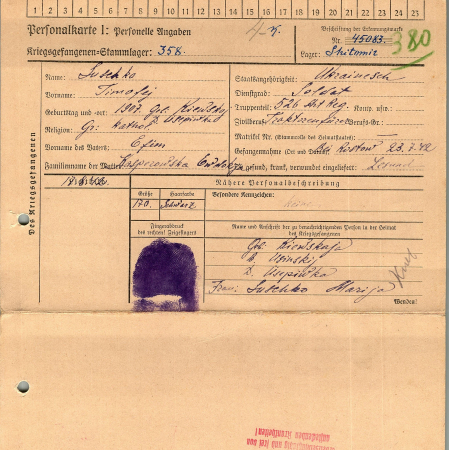 1 2 3 4 5 6 7 8 9 10 11 12 13 14 15 16 17 18 19 20 21 22 23 24 25
Personalkarte I: Personelle Angaben
Kriegsgefangenen-Stammlager: 358.
Beschriftung der Erkennungsmarke
Nr. 45083.
Lager: Shitomir
380
Des Kriegsgefangenen
Name: Suschko
Vorname: Timofej
Geburtstag und -ort: 1907. Geb. Kiewsky
D. Usepiwka
Religion: Gr. kathol.
Vorname des Vaters: Efim
Familienname der Mutter:
Staatsangehörigkeit: Ukrainisch
Dienstgrad: Soldat
Truppenteil: 526 Art Reg. Komp. usw.:
Zivilberuf: Berufs-Gr.:
Matrikel Nr. (Stammrolle des Heimatstaates):
Gefangennahme (Ort und Datum): Rostow 23.7.42
Ob gesund, krank, verwundet eingeliefert: Gesund
Nähere Personalbeschreibung
Größe
170.
Haarfarbe
schwarz
Besondere Kennzeichen:
keine
Fingerabdruck
des rechten! Zeigefingers
Name und Anschrift der zu benachrichtigenden Person in der Heimat
des Kriegsgefangenen
Geb. Kiewskaja
D. Usepiwka
Frau: Suschko Marija
Wenden!